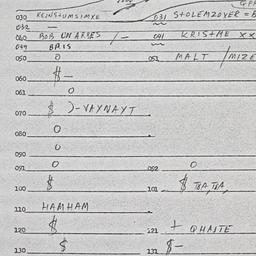 030 KCINSTUMSIMXE 031 STOLEMZOYER = B
032
040 BOB UNARBES /- 041 KRISTME XX
049 BRIS
050 0 051 MALT /MIZE
060 $-
061 0
070 $ )-VAYNAYT
080 0
090 0
091 0 092 0
100 $ 101 $ TBA, TBA,
110 HAMHAM
120 $ 121 + QHAITE
130 $ 131 $-